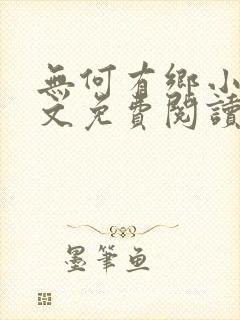 無何有鄉小
文免費閱讀
墨筆魚